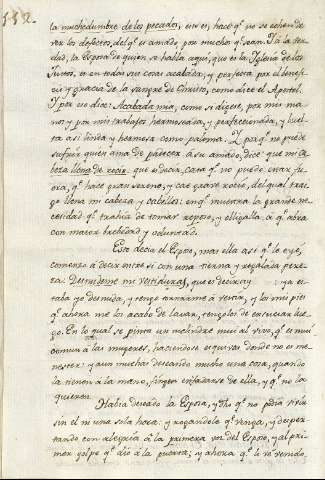 152.
la muchedumbre de los pecados, esto es, hace q.e no se echen de
ver los defectos, del q.e es amado por muchos q.e sean. Y a la ver-
dad, la Esposa de quien se habla aqui, que es la Iglesia de los
Justos, es en todas sus cosas acabada, y perfecta por el benefi-
cio y gracia de la sangre de Christo, como dice el Apostol.
Y por eso dice: Acabada mia, como si dijese, por mis ma-
nos y por mis trabajos hermoseada, y perfeccionada, y buel-
ta asi linda y hermosa como paloma. Y porq.e no puede
sufrir quien ama de parecer à su amado, dice que mi ca-
beza llena de rocio. que es decir, cata q.e no puedo estar fu-
era, q.e hace gran sereno, y cae grave rocio, del qual trai-
go llena mi cabeza y cabellos: en q.e muestra la grande ne-
cesidad q.e trahia de tomar reposo, y obligalla à q.e abra
con maior brebedad y voluntad.
Esto decia el Esposo, mas ella asi q.e le oyó,
comenzó a decir entre si con una tierna y regalada pere-
za. Desnudeme mi vestidura, que es decir, oy ya es-
taba yo desnuda, y tengo tornarme a vestir, y los mis pies
q.e ahora me los acabo de lavar, tengolos de ensuciar lue-
go. En lo qual se pinta un melindre mui al vivo, q.e es mui
comun a las mugeres, haciendose esquivas donde no es me-
nester: y aun muchas deseando mucho una cosa, quando
la tienen a la mano, fingen enfadarse de ella, y q.e no la
quieren.
Habia deseado la Esposa, y dho q.e no podia vivir
sin el ni una sola hora: y rogandole q.e venga, y desper-
tando con alegria à la primera voz del Esposo, y al pri-
mer golpe q.e dió à la puerta; y ahora q.e le ve venido,